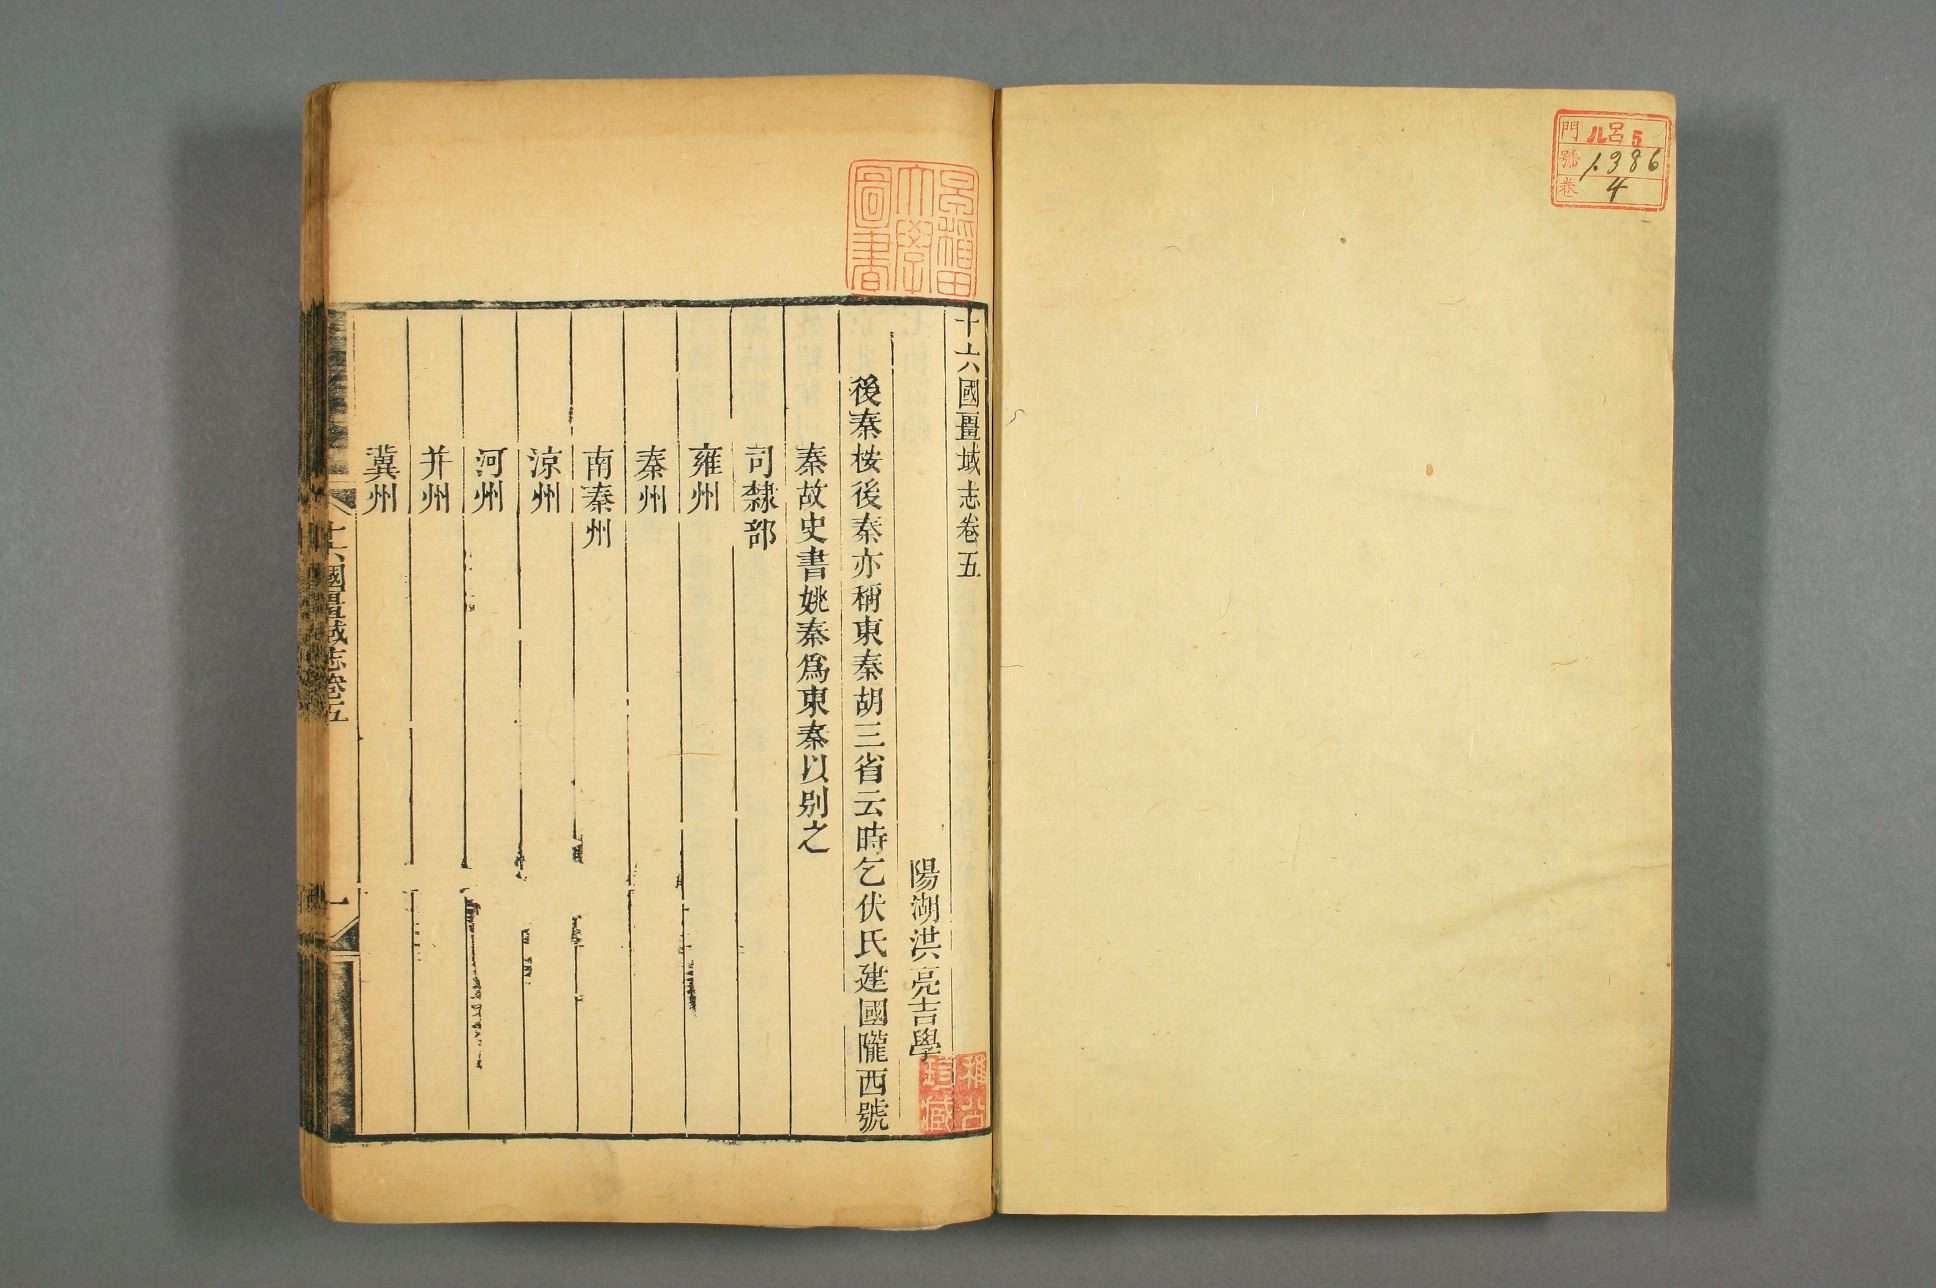 門 ル呂 5
號 1386
卷 4
早稲田
大學
圖書
十六國畺域志卷五
陽湖洪亮吉學
後秦桉後秦亦稱東秦胡三省云時乞伏氏建國隴西號
秦故史書姚秦爲東秦以别之
司隸部
雍州
秦州
南秦州
涼州
河州
并州
冀州
十六國畺域志卷五
一
珍藏